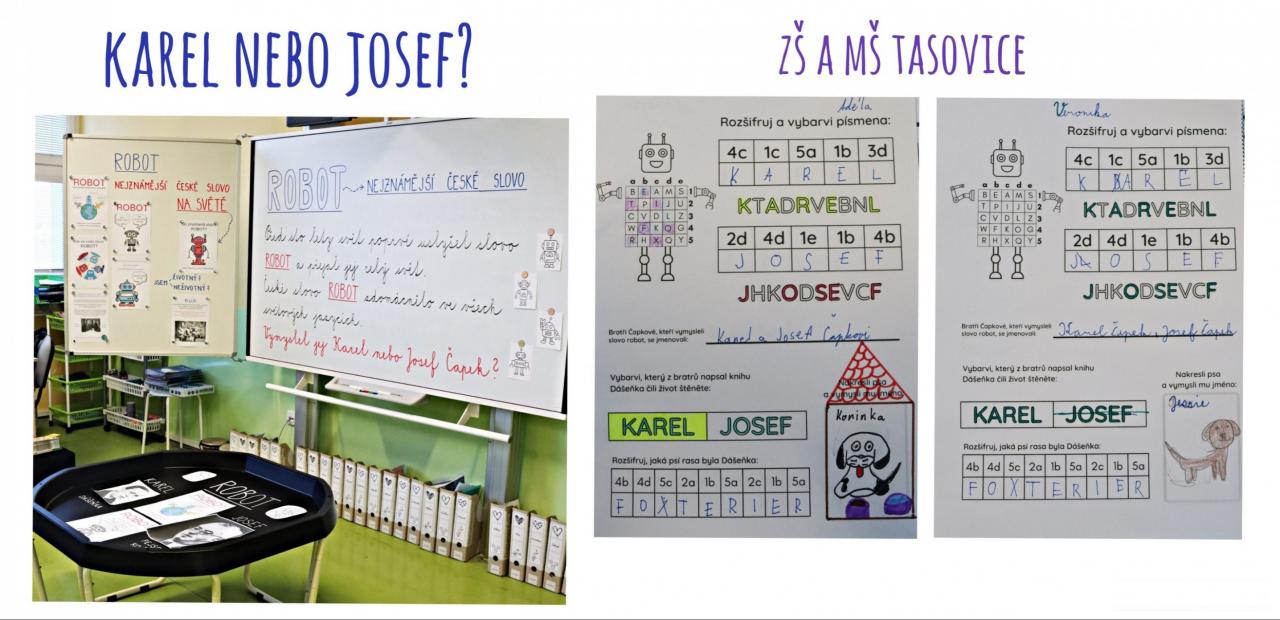 KAREL NEBO JOSEF?
ZŠ A MŠ TASOVICE
ROBOT
NEJZNÁMĚJŠÍ ČESKÉ SLOVO
NA SVĚTĚ
ROBOT
ROBOT
JSEM
ŽIVOTNÝ?
NEŽIVOTNÝ?
ROBOT → NEJZNÁMĚJŠÍ ČESKÉ SLOVO
Před sto lety svět poprvé uslyšel slovo
ROBOT a přijal jej celý svět.
České slovo ROBOT zdomácnělo ve všech
světových jazycích.
Vymyslel jej Karel nebo Josef Čapek?
KAREL
ROBOT
DÁŠEŇKA
JOSEF
Adéla
Rozšifruj a vybarvi písmena:
4c 1c 5a 1b 3d
K A R E L
KTADRVEBNL
a b c d e
B E A M S 1
T P I J U 2
C V D L Z 3
W F K O G 4
R H X Q Y 5
2d 4d 1e 1b 4b
J O S E F
JHKODSEVCF
Bratři Čapkové, kteří vymysleli
slovo robot, se jmenovali:
Karel a Josef Čapkovi
Vybarvi, který z bratrů napsal knihu
Dášeňka čili život štěněte:
Nakresli psa
a vymysli mu jméno:
KAREL JOSEF
Koninka
Rozšifruj, jaká psí rasa byla Dášeňka:
4b 4d 5c 2a 1b 5a 2c 1b 5a
F O X T E R I E R
Veronika
Rozšifruj a vybarvi písmena:
4c 1c 5a 1b 3d
K A R E L
KTADRVEBNL
a b c d e
B E A M S 1
T P I J U 2
C V D L Z 3
W F K O G 4
R H X Q Y 5
2d 4d 1e 1b 4b
J O S E F
JHKODSEVCF
Bratři Čapkové, kteří vymysleli
slovo robot, se jmenovali:
Karel Čapek, Josef Čapek
Vybarvi, který z bratrů napsal knihu
Dášeňka čili život štěněte:
Nakresli psa
a vymysli mu jméno:
Jessie
KAREL JOSEF
Rozšifruj, jaká psí rasa byla Dášeňka:
4b 4d 5c 2a 1b 5a 2c 1b 5a
F O X T E R I E R